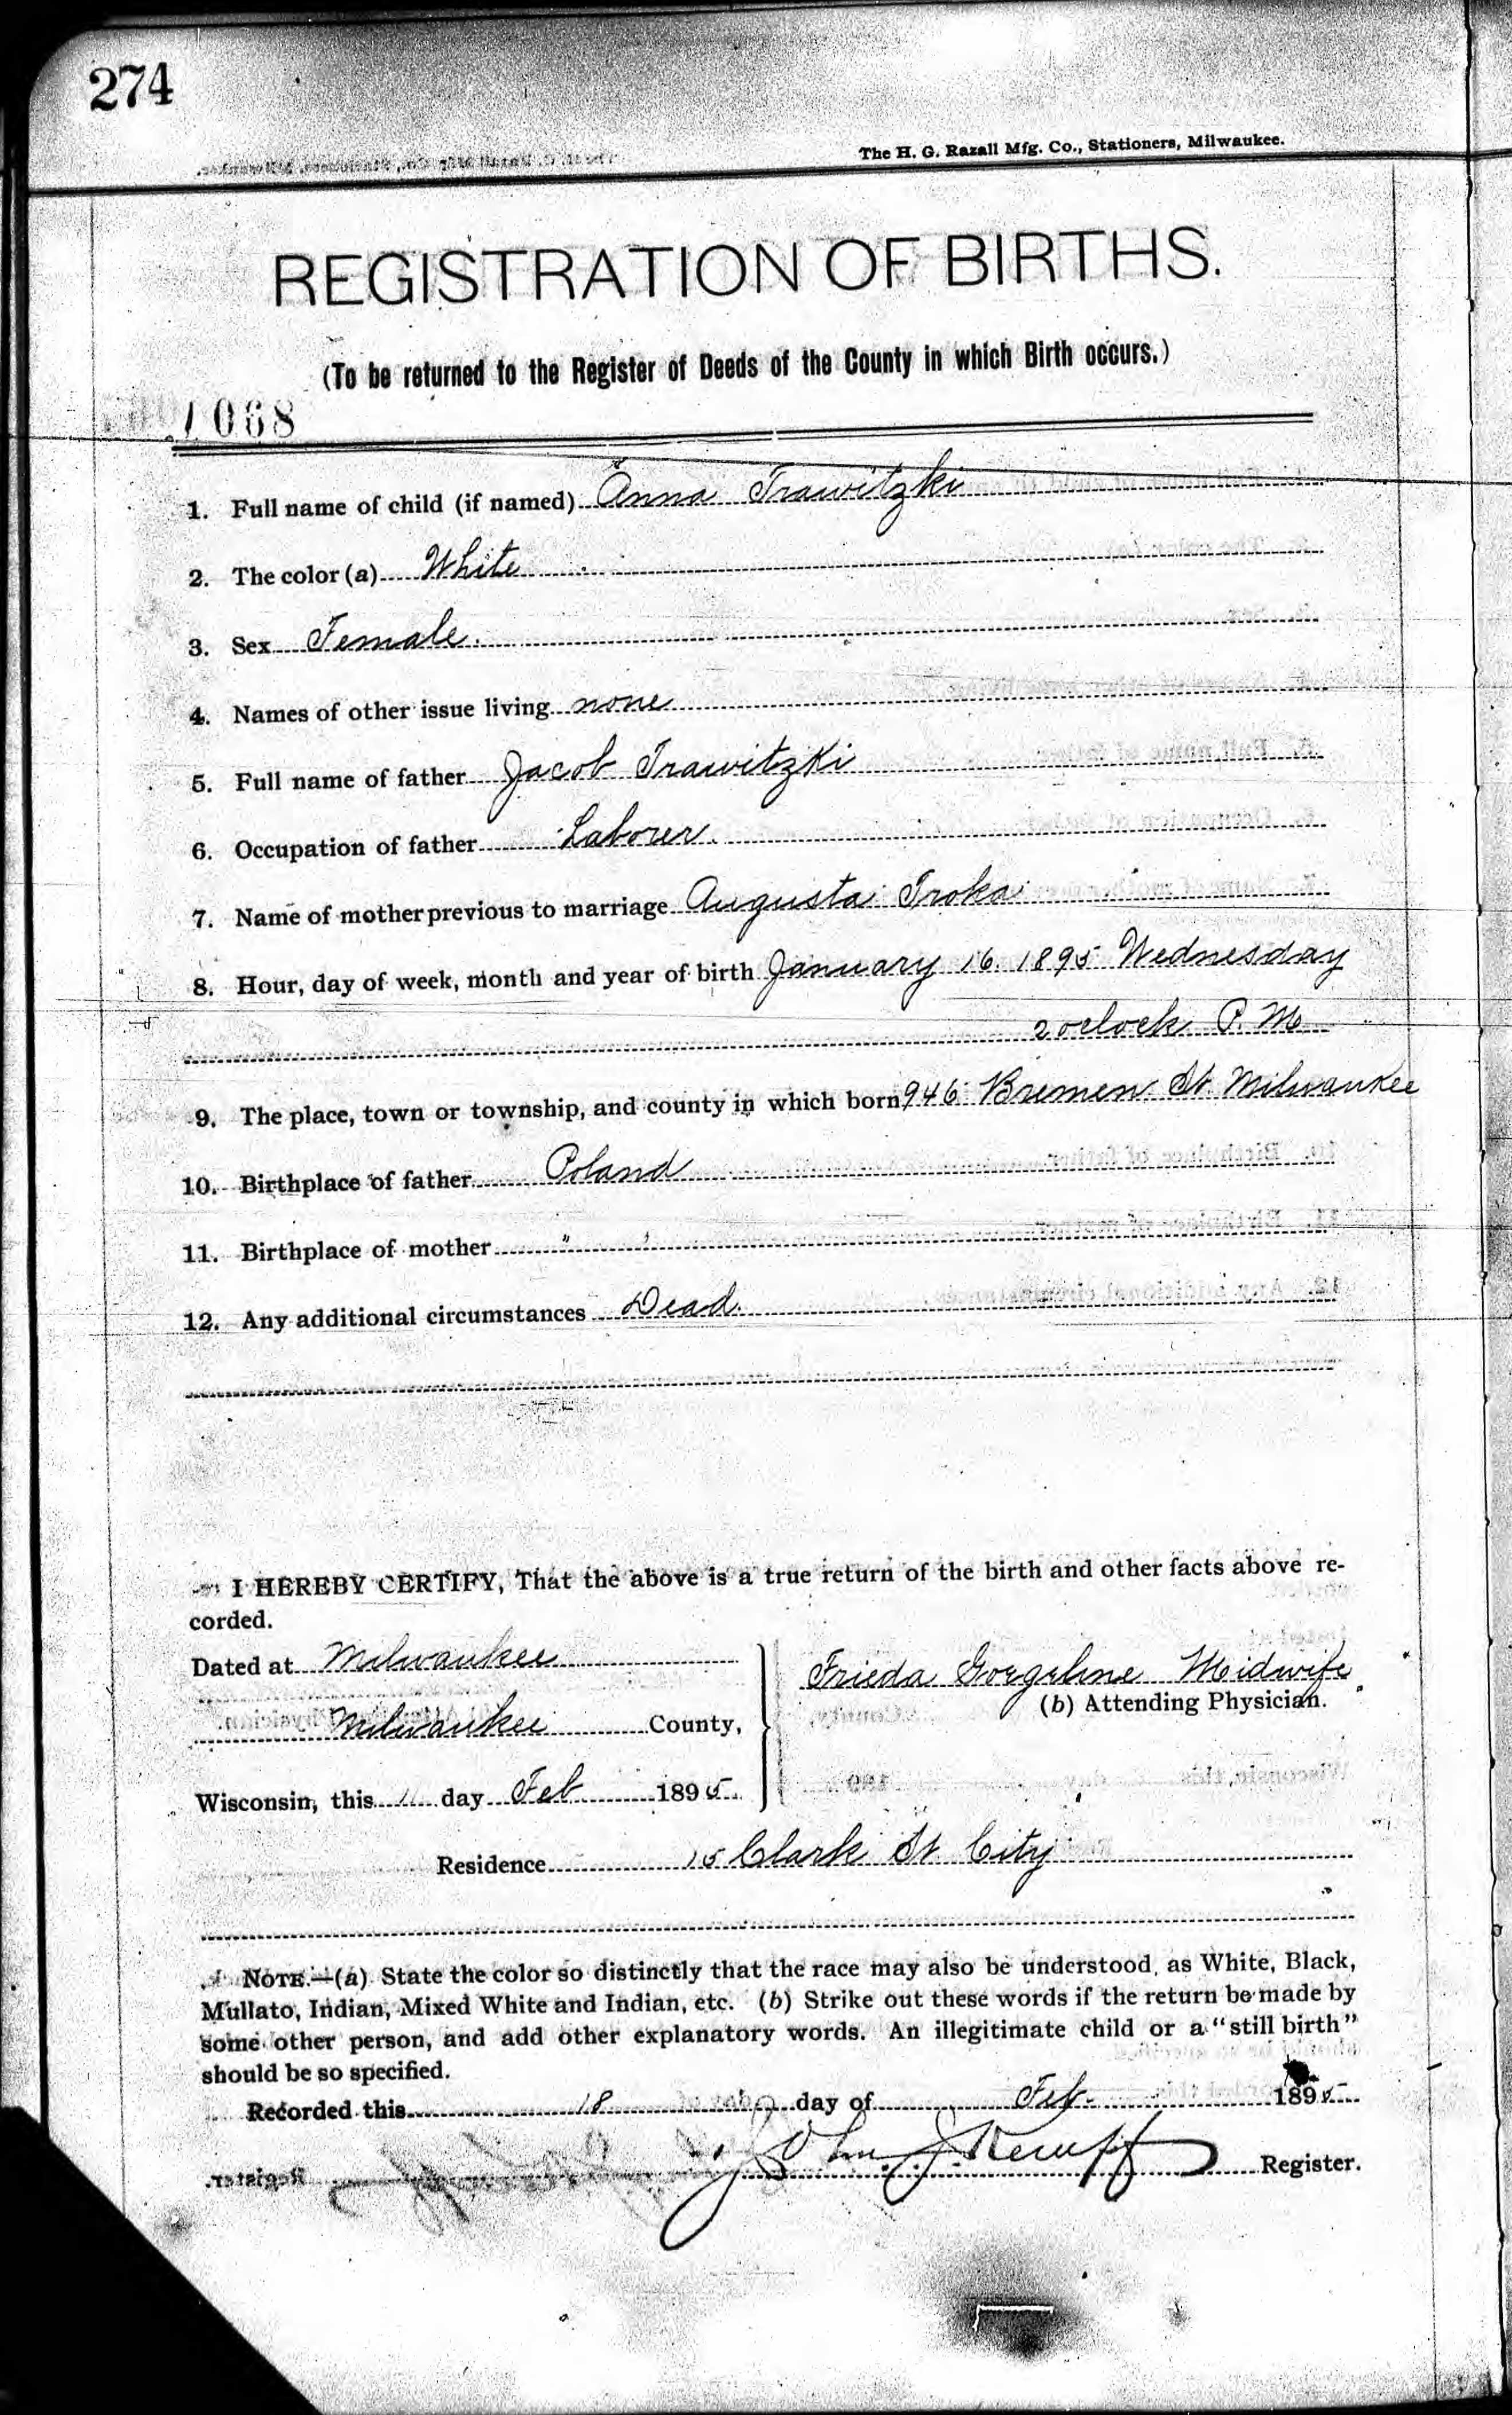 274
The H. G. Razall Mfg. Co., Stationers, Milwaukee.
REGISTRATION OF BIRTHS.
(To be returned to the Register of Deeds of the County in which Birth occurs.)
1068
1. Full name of child (if named) Anna Trawitzki
2. The color (a) White
3. Sex Female.
4. Names of other issue living none
5. Full name of father Jacob Trawitzki
6. Occupation of father Laborer.
7. Name of mother previous to marriage Augusta Troka
8. Hour, day of week, month and year of birth January 16. 1895 Wednesday
2 oclock P. M
9. The place, town or township, and county in which born 946 Bremen St. Milwaukee
10. Birthplace of father Poland
11. Birthplace of mother " "
12. Any additional circumstances Dead.
I HEREBY CERTIFY, That the above is a true return of the birth and other facts above re-
corded.
Dated at Milwaukee
Frieda Midwife
(b) Attending Physician.
Milwaukee County,
Wisconsin, this 11 day Feb 1895.
Residence 15 Clark St City
NOTE.—(a) State the color so distinctly that the race may also be understood, as White, Black,
Mullato, Indian, Mixed White and Indian, etc. (b) Strike out these words if the return be made by
some other person, and add other explanatory words. An illegitimate child or a "still birth"
should be so specified.
Recorded this 18 day of Feb. 1895
John J. Register.